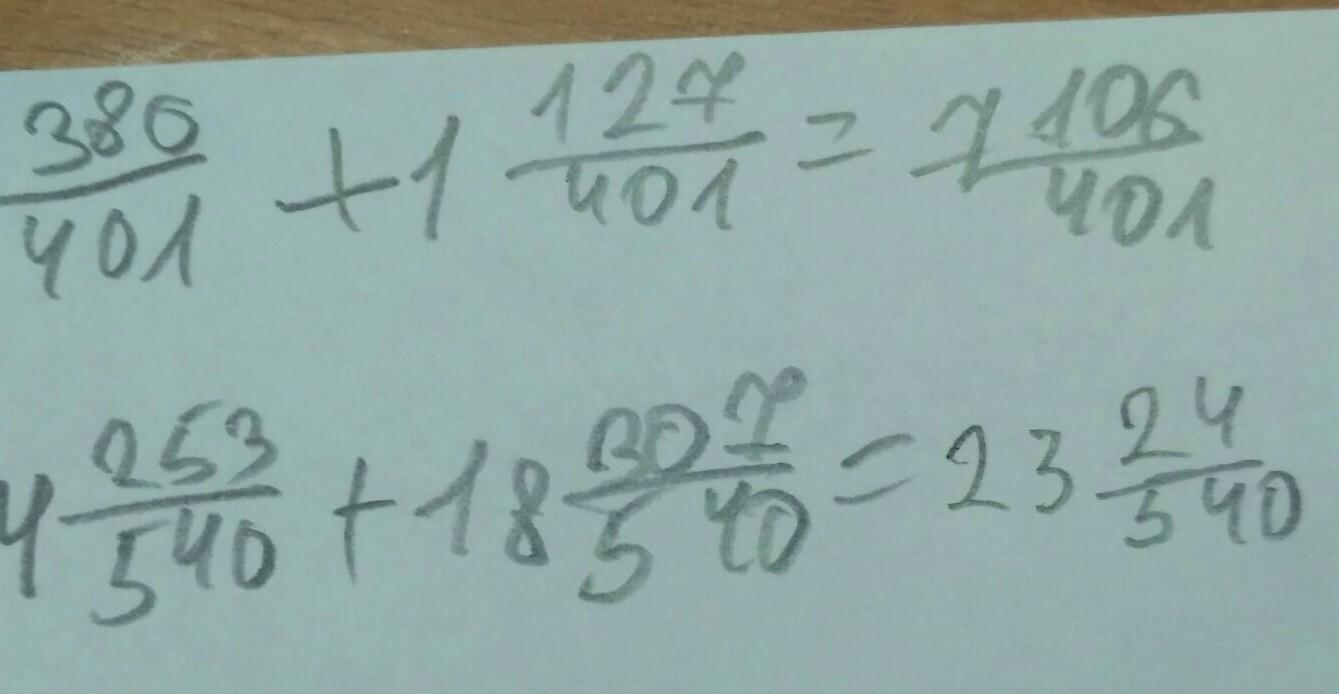 380/401 + 1 127/401 = 7 106/401
4 253/540 + 18 307/540 = 23 24/540